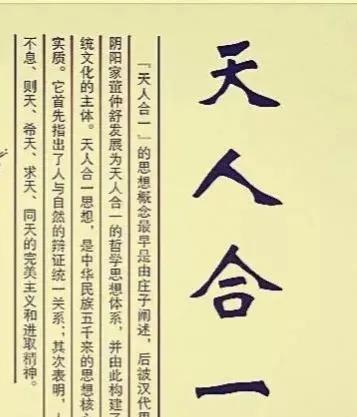 天人合一
『天人合一』的思想概念最早是由庄子阐述，后被汉代思
阴阳家董仲舒发展为天人合一的哲学思想体系，并由此构建了
统文化的主体。天人合一思想，是中华民族五千来的思想核心
实质。它首先指出了人与自然的辩证统一关系；其次表明，人
不息、则天、希天、求天、同天的完美主义和进取精神。